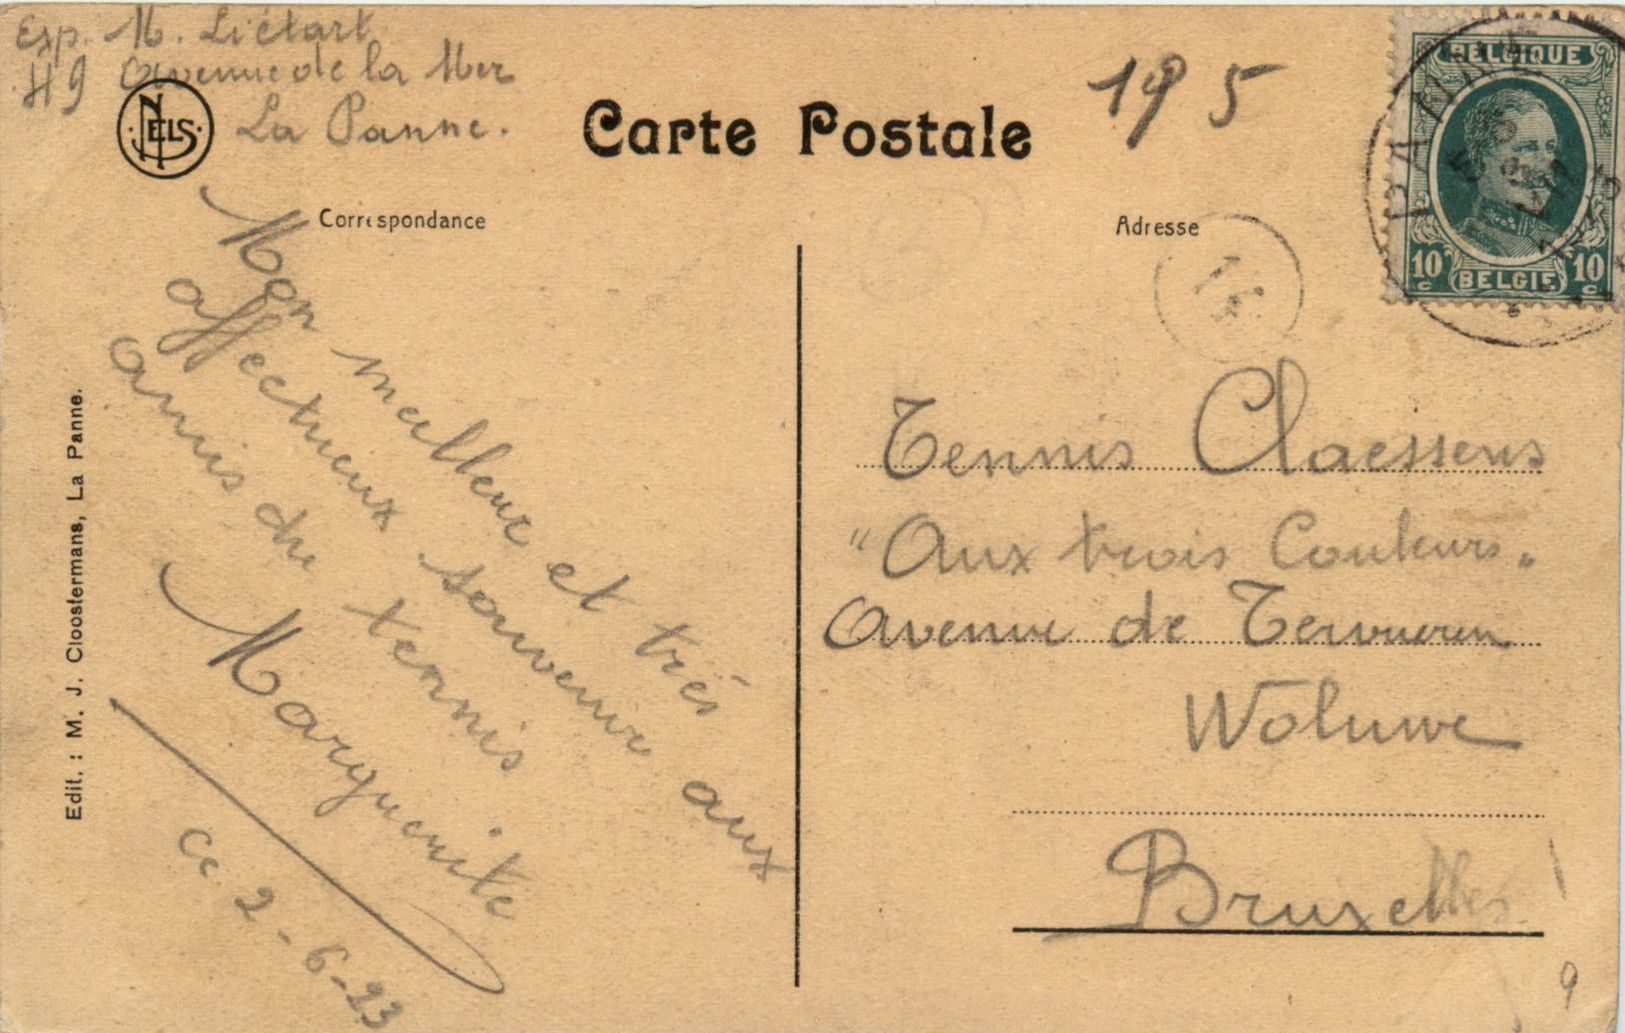 Esp. M. Liétart
49 Avenue de la Mer
La Panne.
NELS
Carte Postale
195
BELGIQUE
10c 10c
BELGIE
PANNE
Correspondance
Adresse
14
Mon meilleur et très
affectueux souvenir aux
amis du tennis
Marguerite
Ce 2-6-23
Tennis Claessens
"Aux trois Couleurs"
Avenue de Tervueren
Woluwe
Bruxelles
9
Edit. : M. J. Cloostermans, La Panne.